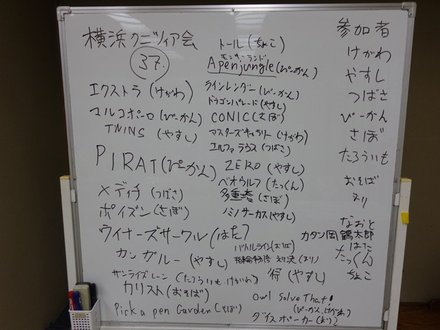 横浜クニツィア会
37
エクストラ (けがわ)
マルコポーロ (ぴーかん)
TWINS (やすし)
PIRAT (ぴーかん)
メディチ (つばさ)
ポイズン (さぼ)
ウイナーズサークル (はた?)
カンガルー (やすし)
サンライズレーン (たろういも けがわ)
カリスト (おそば)
Pick a pen Garden (さぼ)
トール (ちょこ)
Apenjungle (ぴーかん)
ラインレンダー (ぴーかん)
ドラゴンパレード (やすし)
CONIC (さぼ)
マスターズギャラリー (けがわ)
エルファラウス (つばさ)
ZERO (やすし)
ベオウルフ (たっくん)
多重者 (さぼ)
ノミノサーカス (やすし)
バトルライン (おそば)
対決 (えり)
得 (やすし)
Owl Solve That!
(ぴーかん, けがわ)
ダイスポーカー (えり)
参加者
けがわ
やすし
つばさ
ぴーかん
さぼ
たろういも
おそば
えり
なおと
カタン岡鶴太郎
はた
たっくん
ちょこ